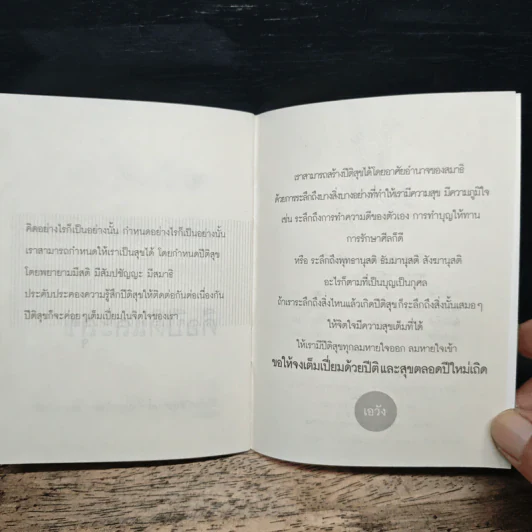 คิดอย่างไรก็เป็นอย่างนั้น กำหนดอย่างไรก็เป็นอย่างนั้น
เราสามารถกำหนดให้เราเป็นสุขได้ โดยกำหนดปีติสุข
โดยพยายามมีสติ มีสัมปชัญญะ มีสมาธิ
ประคับประคองความรู้สึกปีติสุขให้ติดต่อกันต่อเนื่องกัน
ปีติสุขก็จะค่อย ๆ เต็มเปี่ยมในจิตใจของเรา
เราสามารถสร้างปีติสุขได้โดยอาศัยอำนาจของสมาธิ
ด้วยการระลึกถึงบางสิ่งบางอย่างที่ทำให้เรามีความสุข มีความภูมิใจ
เช่น ระลึกถึงการทำความดีของตัวเอง การทำบุญให้ทาน
การรักษาศีลก็ดี
หรือ ระลึกถึงพุทธานุสติ ธัมมานุสติ สังฆานุสติ
อะไรก็ตามที่เป็นบุญเป็นกุศล
ถ้าเราระลึกถึงสิ่งไหนแล้วเกิดปีติสุข ก็ระลึกถึงสิ่งนั้นเสมอ ๆ
ให้จิตใจมีความสุขเต็มที่ได้
ให้เรามีปีติสุขทุกลมหายใจออก ลมหายใจเข้า
ขอให้จงเต็มเปี่ยมด้วยปีติ และสุขตลอดปีใหม่เถิด
เอวัง